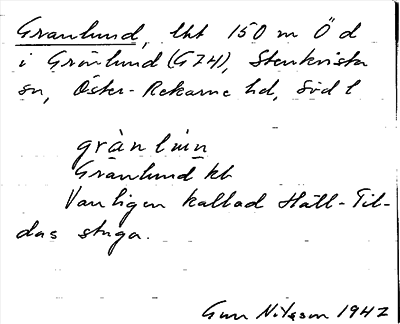 Granlund, lht 150 m Ö d
i Grönlund (G74), Stenkvista
sn, Öster-Rekarne hd, Södl
grànlùn
Granlund kb
Vanligen kallad Häll-Til-
das stuga.
Gun Nilsson 1942